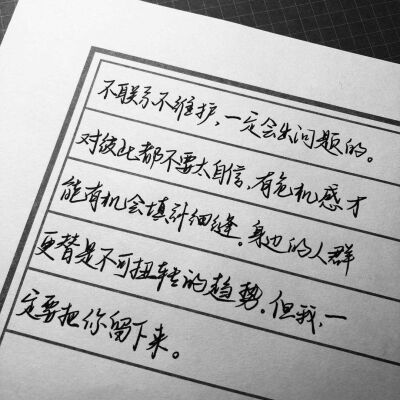 不联系不维护,一定会出问题的。
对彼此都不要太自信,有危机感才
能有机会填补细缝。身边的人群
更替是不可扭转的趋势。但我,一
定要把你留下来。